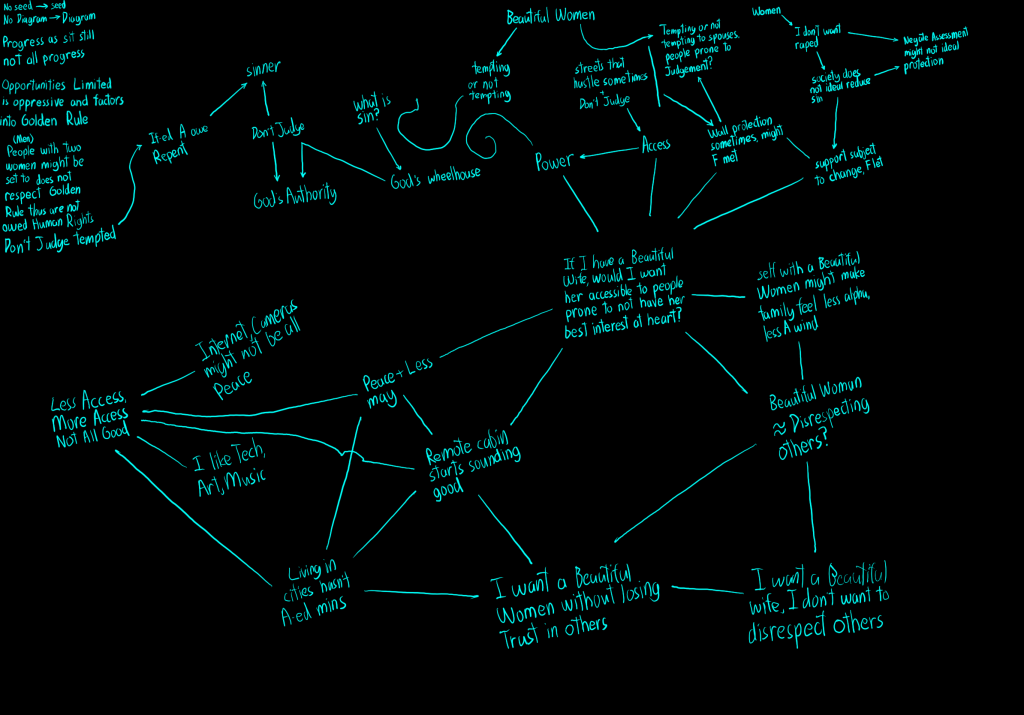 No seed → seed
No Diagram → Diagram
Progress as sit still
not all progress
Opportunities Limited
is oppressive and factors
into Golden Rule
(Men)
People with two
women might be
set to does not
respect Golden
Rule thus are not
owed Human Rights
Don't Judge tempted
It-ed A owe
Repent
sinner
Don't Judge
God's Authority
what is
sin?
God's wheelhouse
Beautiful Women
tempting
or not
tempting
Power
streets that
hustle sometimes
Don't Judge
Access
Tempting or not
tempting to spouses,
people prone to
Judgement?
Wall protection
sometimes, might
F met
Women
I don't want
raped
society does
not ideal reduce
sin
Negate Assessment
might not ideal
protection
support subject
to change, F let
If I have a Beautiful
Wife, would I want
her accessible to people
prone to not have her
best interest at heart?
self with a Beautiful
Women might make
family feel less alpha,
less A wind
Beautiful Woman
≈ Disrespecting
others?
Internet Cameras
might not be all
Peace
Less Access,
More Access
Not All Good
Peace + Less
may
I like Tech,
Art, Music
Remote cabin
starts sounding
good
Living in
cities hasn't
A-ed mins
I want a Beautiful
Women without losing
Trust in others
I want a Beautiful
wife, I don't want to
disrespect others